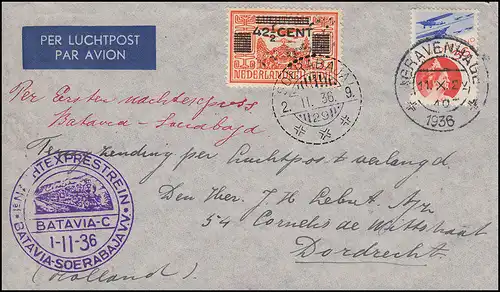 PER LUCHTPOST
PAR AVION
42½ CENT
NEDERLANDSCH
SOERABAJA
2. 11. 36. 9.
'S GRAVENHAGE
1936
Per Eersten nachtexpress
Batavia - Soerabaja
Ter zending per luchtpost verlangd
1e NACHTEXPRESTREIN
BATAVIA-C
1-11-36
BATAVIA-SOERABAJA V.V.
Den Heer J H Lebret Azn
54 Cornelis de Wittstraat
Dordrecht
(Holland)